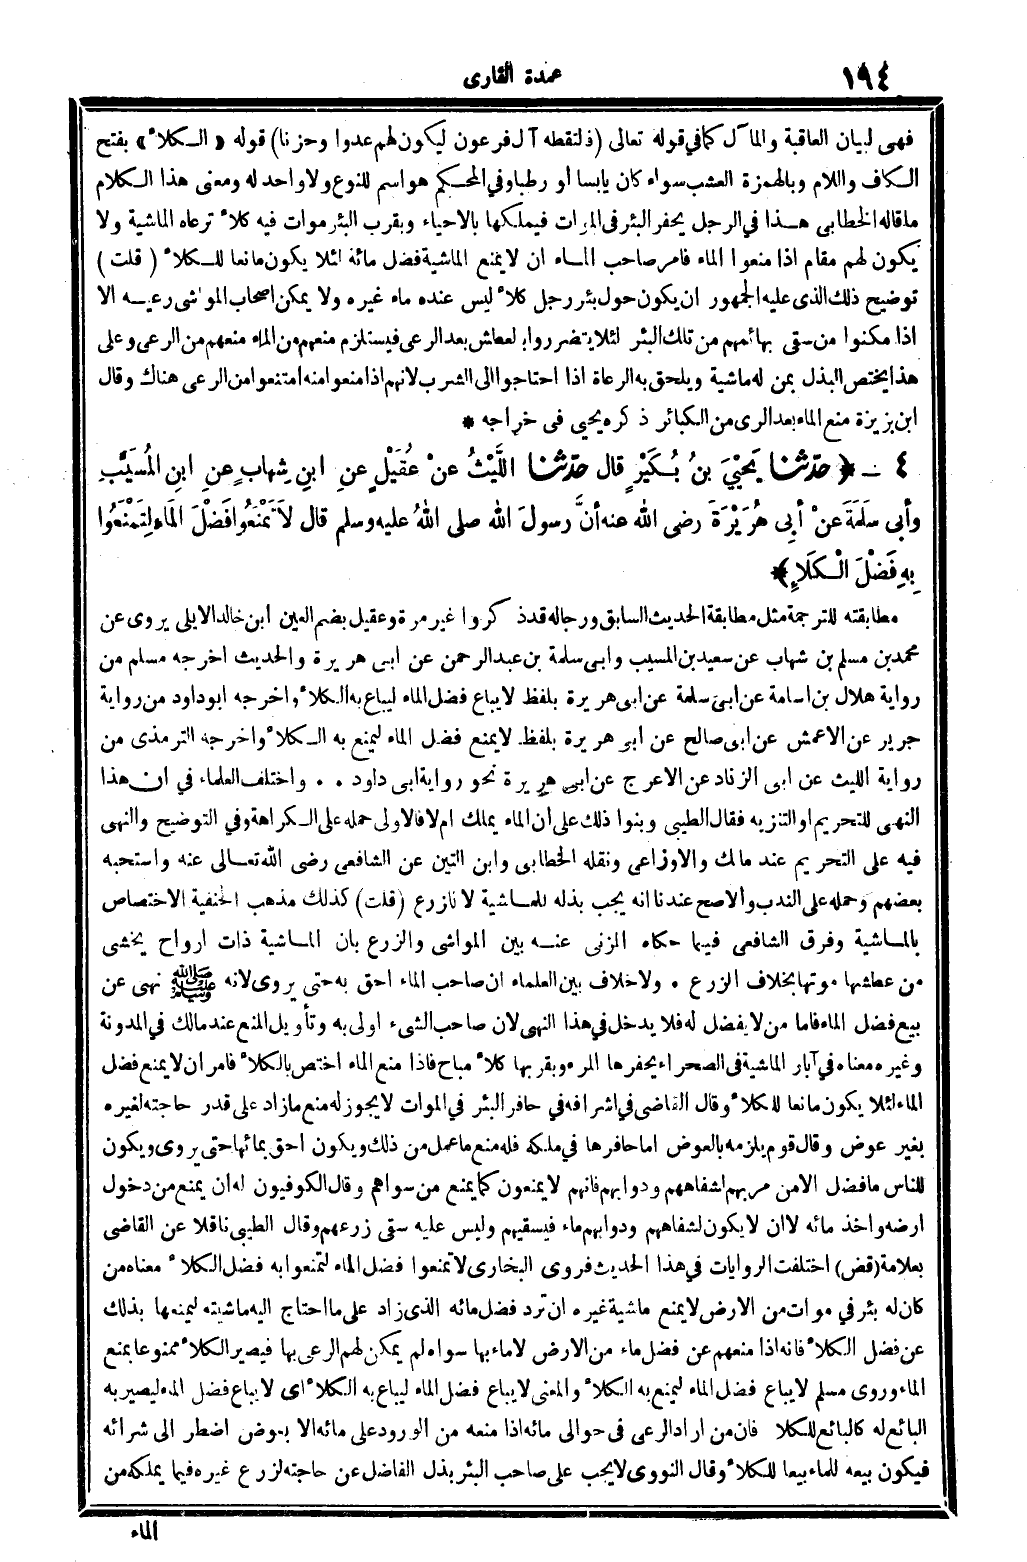 ١٩٤
عمدة القارى
فهى لبيان العاقبة والمآل كما فى قوله تعالى (فالتقطه آل فرعون ليكون لهم عدوا وحزنا) قوله «الكلاء» بفتح
الكاف واللام وبالهمزة العشب سواء كان يابسا أو رطبا وفى المحكم هو اسم للنوع ولا واحد له ومعنى هذا الكلام
ما قاله الخطابى هذا فى الرجل يحفر البئر فى الموات فيملكها بالاحياء وبقرب البئر موات فيه كلاء ترعاه الماشية ولا
يكون لهم مقام اذا منعوا الماء فامر صاحب الماء ان لا يمنع الماشية فضل مائه لئلا يكون مانعا للكلاء (قلت)
توضيح ذلك الذى عليه الجمهور ان يكون حول بئر رجل كلاء ليس عنده ماء غيره ولا يمكن اصحاب المواشى رعيه الا
اذا مكنوا من سقى بهائمهم من تلك البئر لئلا يتضرروا بالعطش بعد الرعى فيستلزم منعهم من الماء منعهم من الرعى وعلى
هذا يختص البذل بمن له ماشية ويلحق به الرعاة اذا احتاجوا الى الشرب لانهم اذا منعوا منه امتنعوا من الرعى هناك وقال
ابن بزيزة منع الماء بعد الرى من الكبائر ذكره يحيى فى خراجه *
٤ ـ ﴿ حدثنا يَحْيَى بنُ بُكَيْرٍ قال حدثنا اللَّيْثُ عنْ عُقَيْلٍ عنِ ابنِ شِهابٍ عنِ ابنِ المُسَيَّبِ
وأبى سلَمَةَ عنْ أبِى هُرَيْرَةَ رضى الله عنه أنَّ رسولَ الله صلى اللهُ عليه وسلم قال لاَ تَمْنَعُوا فَضْلَ المَاءِ لِتَمْنَعُوا
بِهِ فَضْلَ الْكَلاَءِ ﴾*
مطابقته للترجمة مثل مطابقة الحديث السابق ورجاله قد ذكروا غير مرة وعقيل بضم العين ابن خالد الايلى يروى عن
محمد بن مسلم بن شهاب عن سعيد بن المسيب وابى سلمة بن عبد الرحمن عن ابى هريرة والحديث اخرجه مسلم من
رواية هلال بن اسامة عن ابى سلمة عن ابى هريرة بلفظ لا يباع فضل الماء ليباع به الكلاء واخرجه ابو داود من رواية
جرير عن الاعمش عن ابى صالح عن ابى هريرة بلفظ لا يمنع فضل الماء ليمنع به الكلاء واخرجه الترمذى من
رواية الليث عن ابى الزناد عن الاعرج عن ابى هريرة نحو رواية ابى داود . . واختلف العلماء فى ان هذا
النهى للتحريم او التنزيه فقال الطيبى وبنوا ذلك على أن الماء يملك ام لا فالاولى حمله على الكراهة وفى التوضيح والنهى
فيه على التحريم عند مالك والاوزاعى ونقله الخطابى وابن التين عن الشافعى رضى الله تعالى عنه واستحبه
بعضهم وحمله على الندب والاصح عندنا انه يجب بذله للماشية لا للزرع (قلت) كذلك مذهب الحنفية الاختصاص
بالماشية وفرق الشافعى فيما حكاه المزنى عنه بين المواشى والزرع بان الماشية ذات ارواح يخشى
من عطشها موتها بخلاف الزرع . ولا خلاف بين العلماء ان صاحب الماء احق به حتى يروى لانه ﷺ نهى عن
بيع فضل الماء فاما من لا يفضل له فلا يدخل فى هذا النهى لان صاحب الشىء اولى به وتأويل المنع عند مالك فى المدونة
وغيره معناه فى آبار الماشية فى الصحراء يحفرها المرء وبقربها كلاء مباح فاذا منع الماء اختص بالكلاء فامر ان لا يمنع فضل
الماء لئلا يكون مانعا للكلاء وقال القاضى فى اشرافه فى حافر البئر فى الموات لا يجوز له منع مازاد على قدر حاجته لغيره
بغير عوض وقال قوم يلزمه بالعوض اما حافرها فى ملكه فله منع ما عمل من ذلك ويكون احق بمائها حتى يروى ويكون
للناس ما فضل الا من مر بهم لشفاههم ودوابهم فانهم لا يمنعون كما يمنع من سواهم وقال الكوفيون له ان يمنع من دخول
ارضه واخذ مائه لا ان لا يكون لشفاههم ودوابهم ماء فيسقيهم وليس عليه سقى زرعهم وقال الطيبى ناقلا عن القاضى
بعلامة (قض) اختلفت الروايات فى هذا الحديث فروى البخارى لا تمنعوا فضل الماء لتمنعوا به فضل الكلاء معناه من
كان له بئر فى موات من الارض لا يمنع ماشية غيره ان ترد فضل مائه الذى زاد على ما احتاج اليه ماشيته ليمنعها بذلك
عن فضل الكلاء فانه اذا منعهم عن فضل ماء من الارض لا ماء بها سواه لم يمكن لهم الرعى بها فيصير الكلاء ممنوعا بمنع
الماء وروى مسلم لا يباع فضل الماء ليمنع به الكلاء والمعنى لا يباع فضل الماء ليباع به الكلاء اى لا يباع فضل الماء ليصير به
البائع له كالبائع للكلا فان من اراد الرعى فى حوالى مائه اذا منعه من الورود على مائه الا بعوض اضطر الى شرائه
فيكون بيعه للماء بيعا للكلاء وقال النووى لا يجب على صاحب البئر بذل الفاضل عن حاجته لزرع غيره فيما يملكه من
الماء